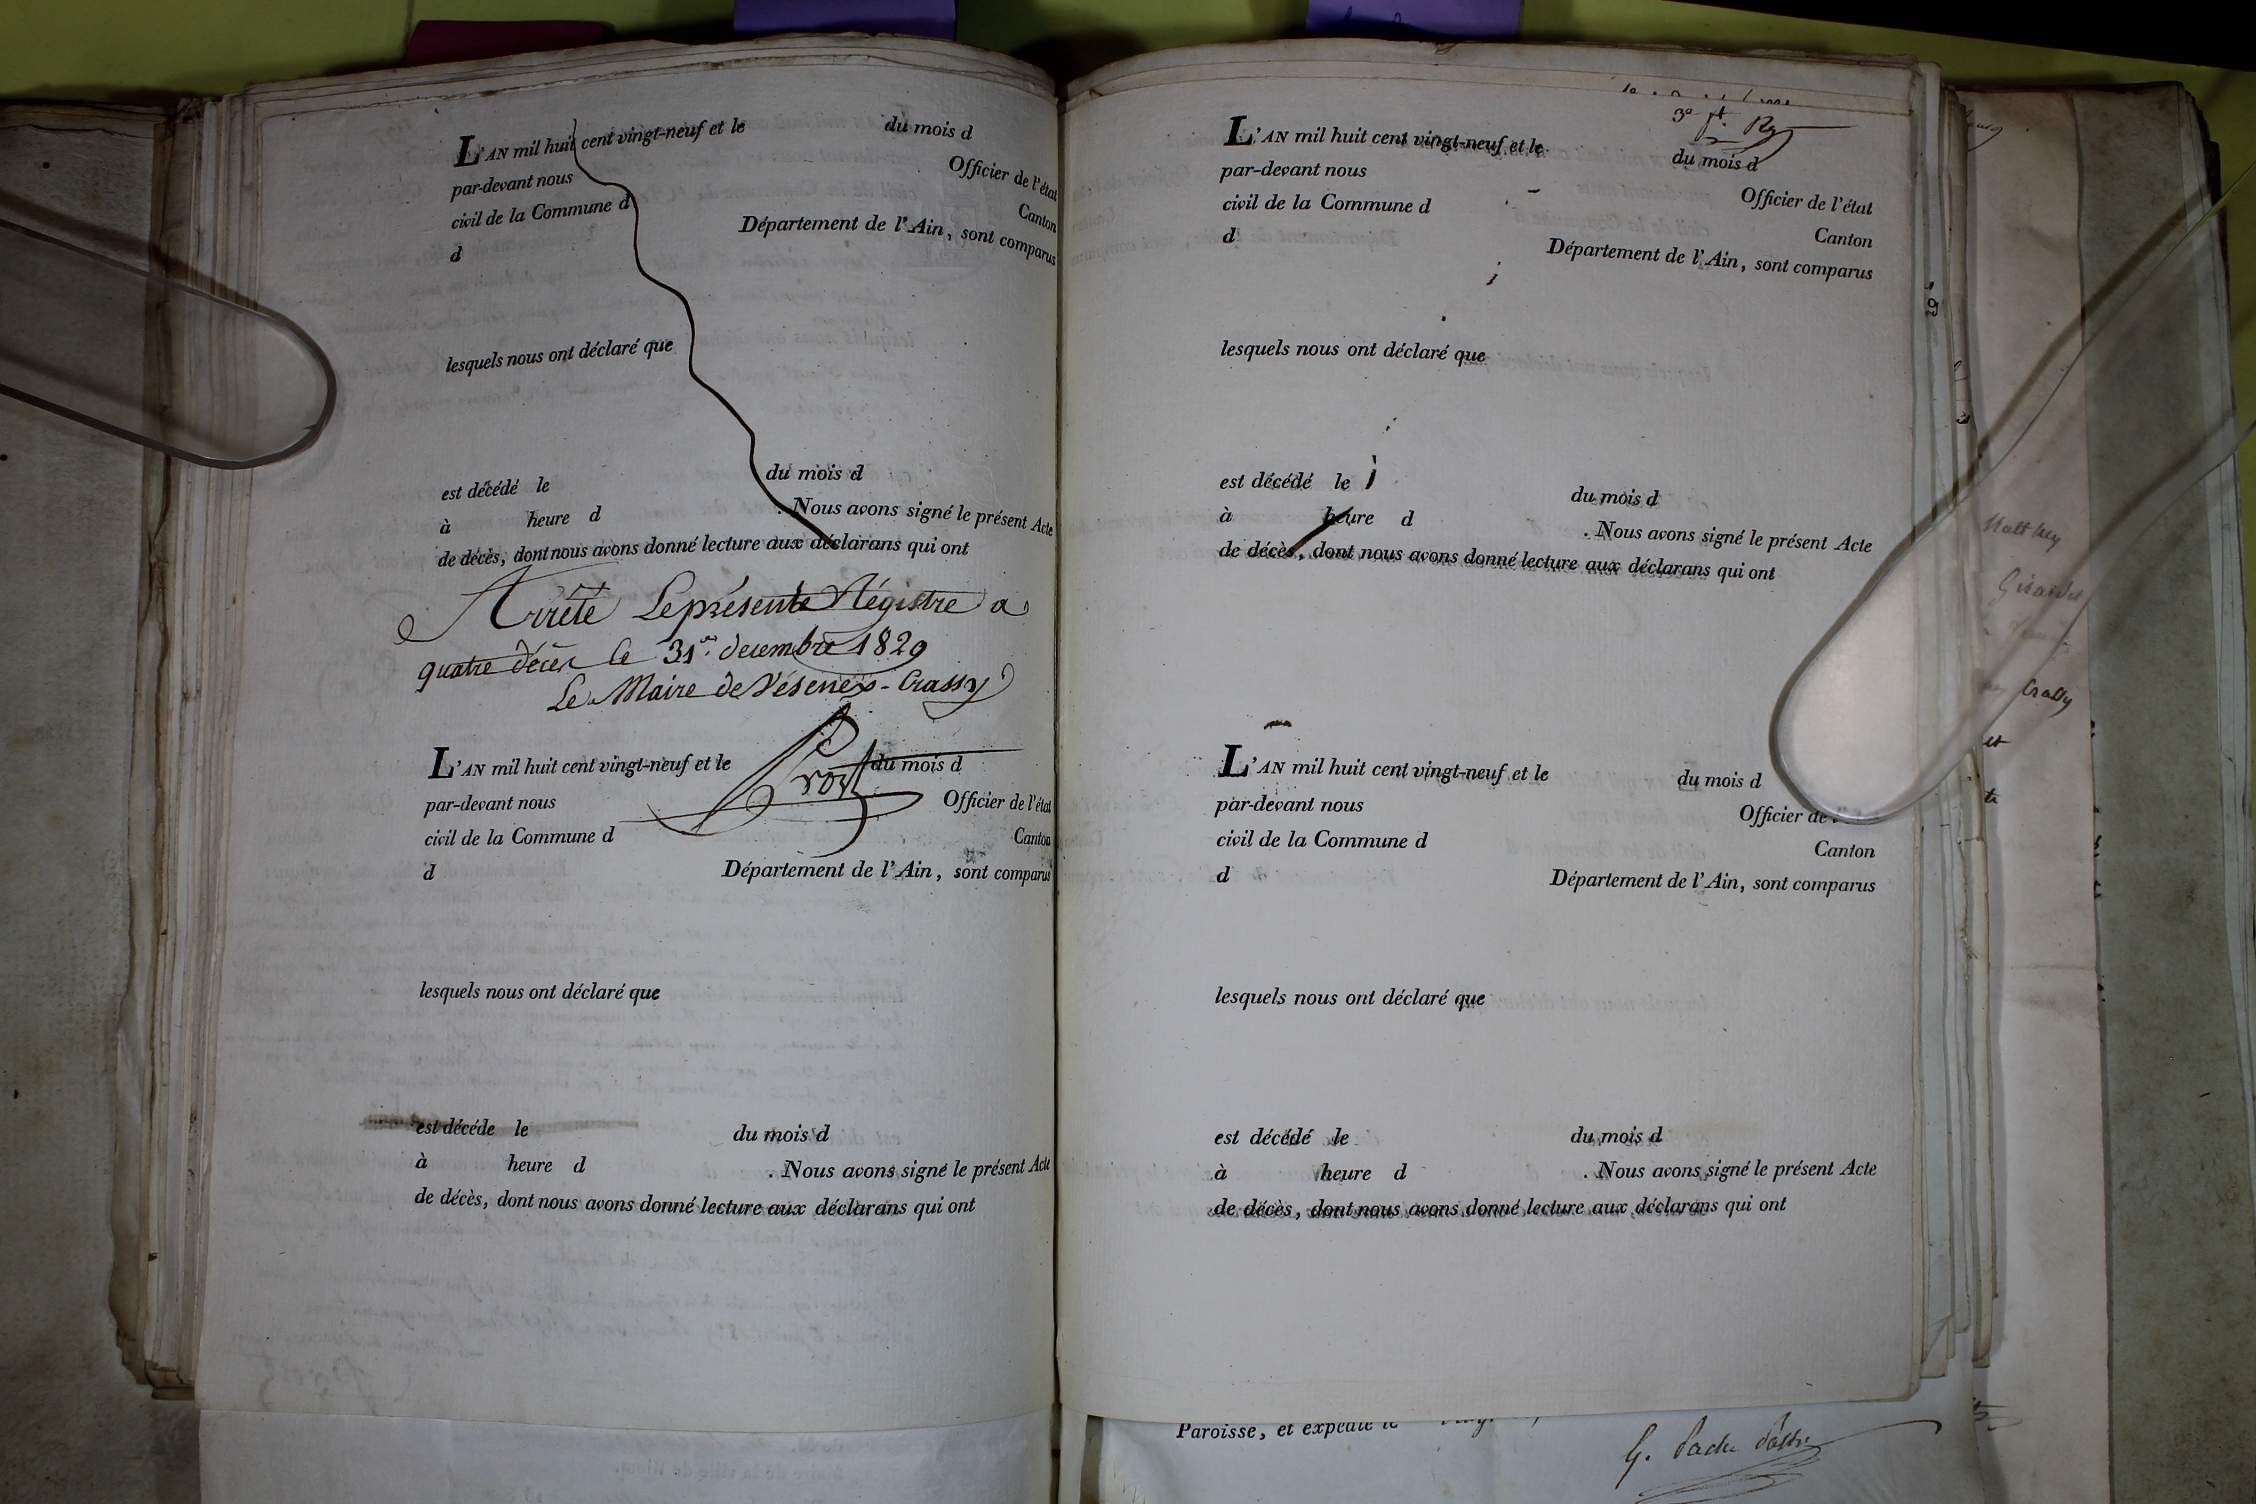 L'AN mil huit cent vingt-neuf et le du mois d
par-devant nous Officier de l'état
civil de la Commune d Canton
d Département de l'Ain, sont comparus
lesquels nous ont déclaré que
est décédé le du mois d
à heure d . Nous avons signé le présent Acte
de décès, dont nous avons donné lecture aux déclarans qui ont
Arrêté Le présente Régistre a
quatre décès le 31. decembre 1829
Le Maire de Vésenex-Crassy
Prost
L'AN mil huit cent vingt-neuf et le du mois d
par-devant nous Officier de l'état
civil de la Commune d Canton
d Département de l'Ain, sont comparus
lesquels nous ont déclaré que
est décédé le du mois d
à heure d . Nous avons signé le présent Acte
de décès, dont nous avons donné lecture aux déclarans qui ont
L'AN mil huit cent vingt-neuf et le du mois d
par-devant nous Officier de l'état
civil de la Commune d Canton
d Département de l'Ain, sont comparus
lesquels nous ont déclaré que
est décédé le du mois d
à heure d . Nous avons signé le présent Acte
de décès, dont nous avons donné lecture aux déclarans qui ont
L'AN mil huit cent vingt-neuf et le du mois d
par-devant nous Officier de
civil de la Commune d Canton
d Département de l'Ain, sont comparus
lesquels nous ont déclaré que
est décédé le du mois d
à heure d . Nous avons signé le présent Acte
de décès, dont nous avons donné lecture aux déclarans qui ont
Paroisse, et expédié le
G.
Crassy